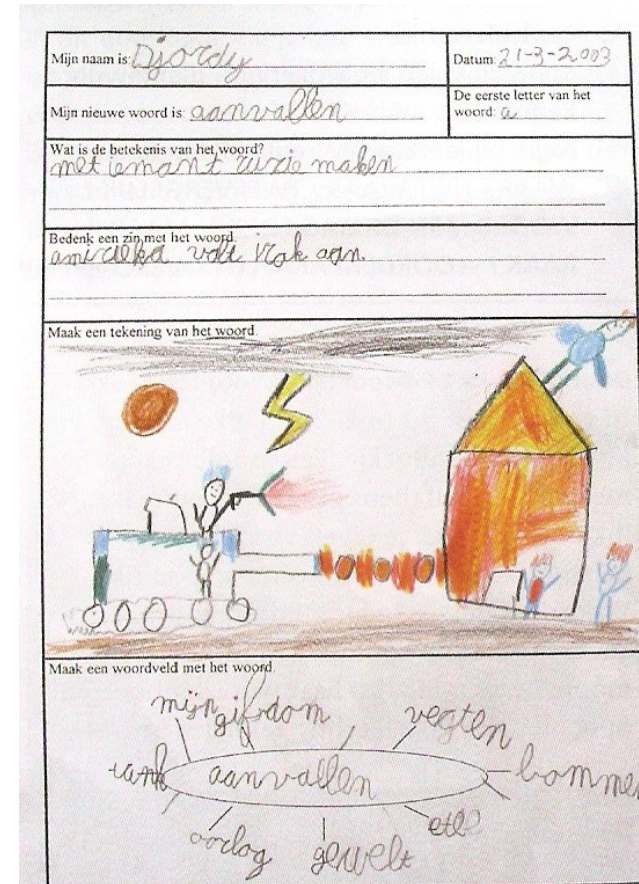 Mijn naam is: Djordy
Datum: 21-3-2003
Mijn nieuwe woord is: aanvallen
De eerste letter van het
woord: a
Wat is de betekenis van het woord?
met iemant ruzie maken
Bedenk een zin met het woord.
valt irak aan.
Maak een tekening van het woord.
Maak een woordveld met het woord.
mijn
vegten
tank
aanvallen
bommen
oorlog
gewelt